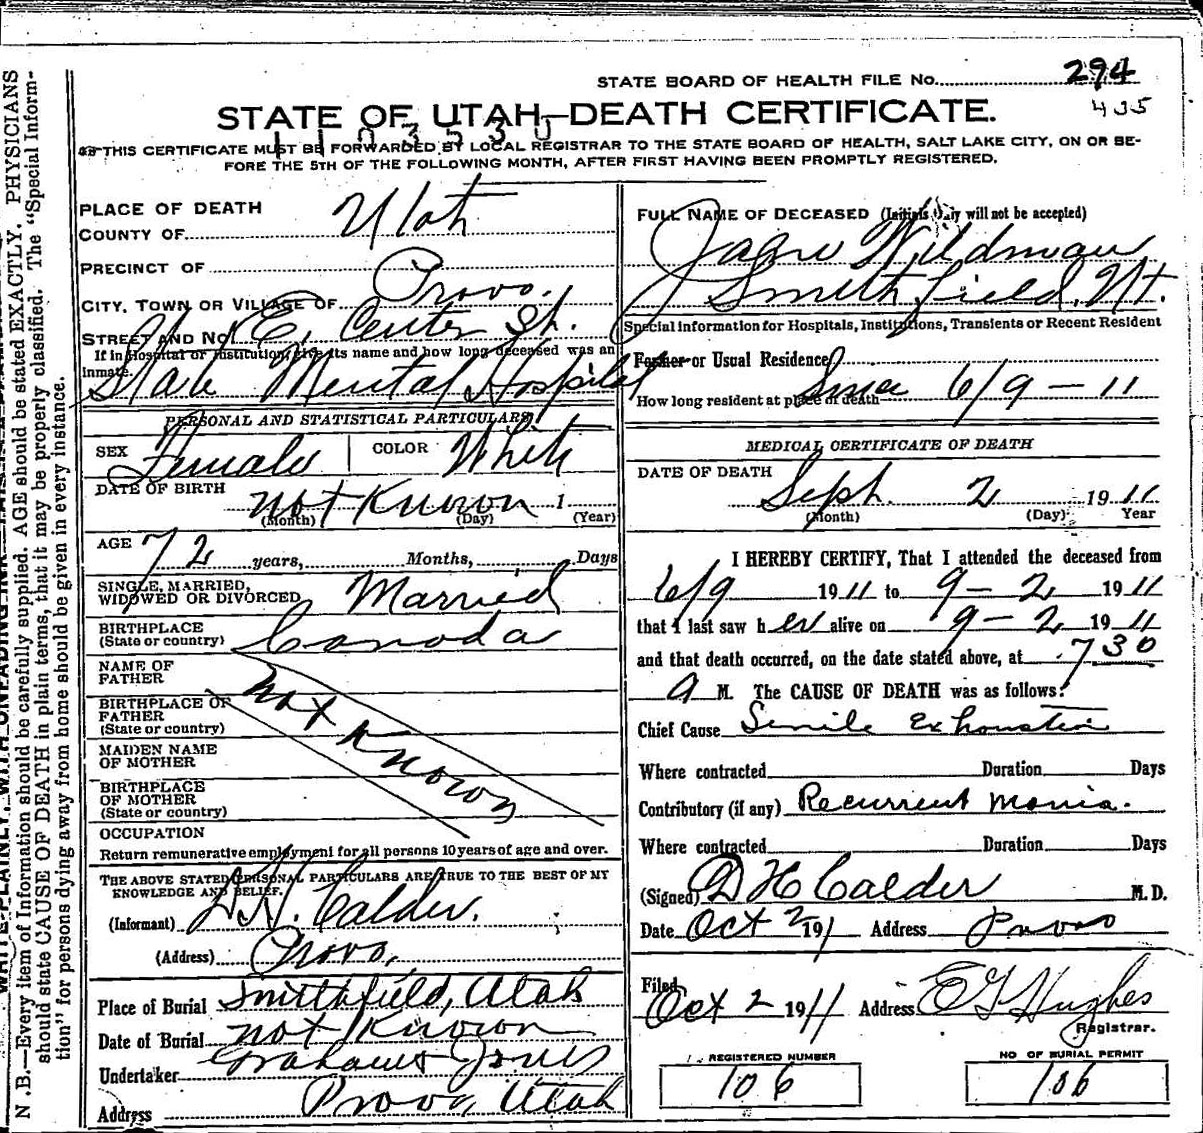 STATE BOARD OF HEALTH FILE No. 294
435
STATE OF UTAH—DEATH CERTIFICATE.
THIS CERTIFICATE MUST BE FORWARDED BY LOCAL REGISTRAR TO THE STATE BOARD OF HEALTH, SALT LAKE CITY, ON OR BE-
FORE THE 5TH OF THE FOLLOWING MONTH, AFTER FIRST HAVING BEEN PROMPTLY REGISTERED.
PLACE OF DEATH
COUNTY OF Utah
PRECINCT OF
CITY, TOWN OR VILLAGE OF Provo.
STREET AND No. E. Center St.
If in Hospital or Institution, give its name and how long deceased was an
inmate.
State Mental Hospital
PERSONAL AND STATISTICAL PARTICULARS
SEX Female COLOR White
DATE OF BIRTH not Known 1
(Month) (Day) (Year)
AGE 72 years, Months, Days
SINGLE, MARRIED,
WIDOWED OR DIVORCED Married
BIRTHPLACE
(State or country) Canada
NAME OF
FATHER
BIRTHPLACE OF
FATHER
(State or country)
MAIDEN NAME
OF MOTHER
BIRTHPLACE
OF MOTHER
(State or country)
not Known
OCCUPATION
Return remunerative employment for all persons 10 years of age and over.
THE ABOVE STATED PERSONAL PARTICULARS ARE TRUE TO THE BEST OF MY
KNOWLEDGE AND BELIEF.
(Informant) D. H. Calder.
(Address) Provo,
Place of Burial Smithfield, Utah
Date of Burial not Known
Undertaker Graham & Jones
Address Provo, Utah
FULL NAME OF DECEASED (Initials only will not be accepted)
Jane Wildman
Smithfield, Ut.
Special information for Hospitals, Institutions, Transients or Recent Resident
Former or Usual Residence
How long resident at place of death Since 6/9 - 11
MEDICAL CERTIFICATE OF DEATH
DATE OF DEATH Sept. 2 1911
(Month) (Day) Year
I HEREBY CERTIFY, That I attended the deceased from
6/9 1911 to 9 - 2 1911
that I last saw her alive on 9 - 2 1911
and that death occurred, on the date stated above, at 730
a M. The CAUSE OF DEATH was as follows:
Chief Cause Senile Exhaustion
Where contracted Duration Days
Contributory (if any) Recurrent mania.
Where contracted Duration Days
(Signed) D H Calder M.D.
Date Oct 2 191 Address Provo
Filed
Oct 2 1911 Address E G Hughes
Registrar.
REGISTERED NUMBER
106
NO OF BURIAL PERMIT
106
N.B.—Every item of Information should be carefully supplied. AGE should be stated EXACTLY. PHYSICIANS
should state CAUSE OF DEATH in plain terms, that it may be properly classified. The "Special Inform-
tion" for persons dying away from home should be given in every instance.